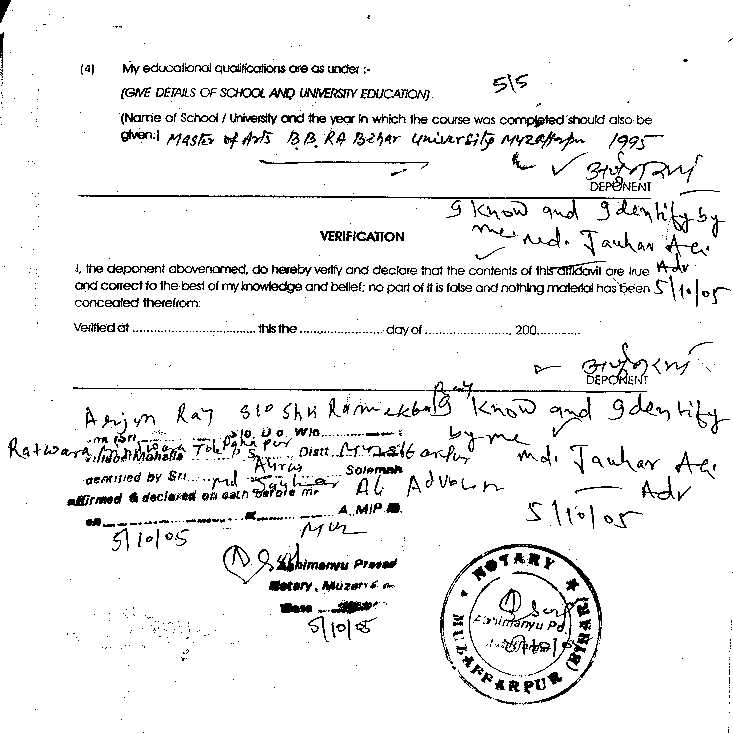 (4) My educational qualifications are as under :-
5/5
(GIVE DETAILS OF SCHOOL AND UNIVERSITY EDUCATION).
(Name of School / University and the year in which the course was completed should also be
given.) Master of Arts B.B. RA Bihar University Muzaffarpur 1995
DEPONENT
I Know and Identify by
me Md. Jauhar Ali
Adv
5/10/05
VERIFICATION
I, the deponent abovenamed, do hereby verify and declare that the contents of this affidavit are true
and correct to the best of my knowledge and belief; no part of it is false and nothing material has been
concealed therefrom:
Verified at ................................ this the ..................... day of ....................... 200...........
DEPONENT
Arjun Ray S/o Shri
S/o, D.o. W/o
Ratwara
Village/Mohalla P.S. Distt. Muzaffarpur
dentified by Sri Md Jauhar Ali Advocate
Solemnh
affirmed & declared on oath before me
on A.M/P.M.
5/10/05
I Know and Identify
by me
Md. Jauhar Ali
Adv
5/10/05
Abhimanyu Prasad
Notary, Muzaffarpur
5/10/05
NOTARY
Abhimanyu Pd.
MUZAFFARPUR (BIHAR)